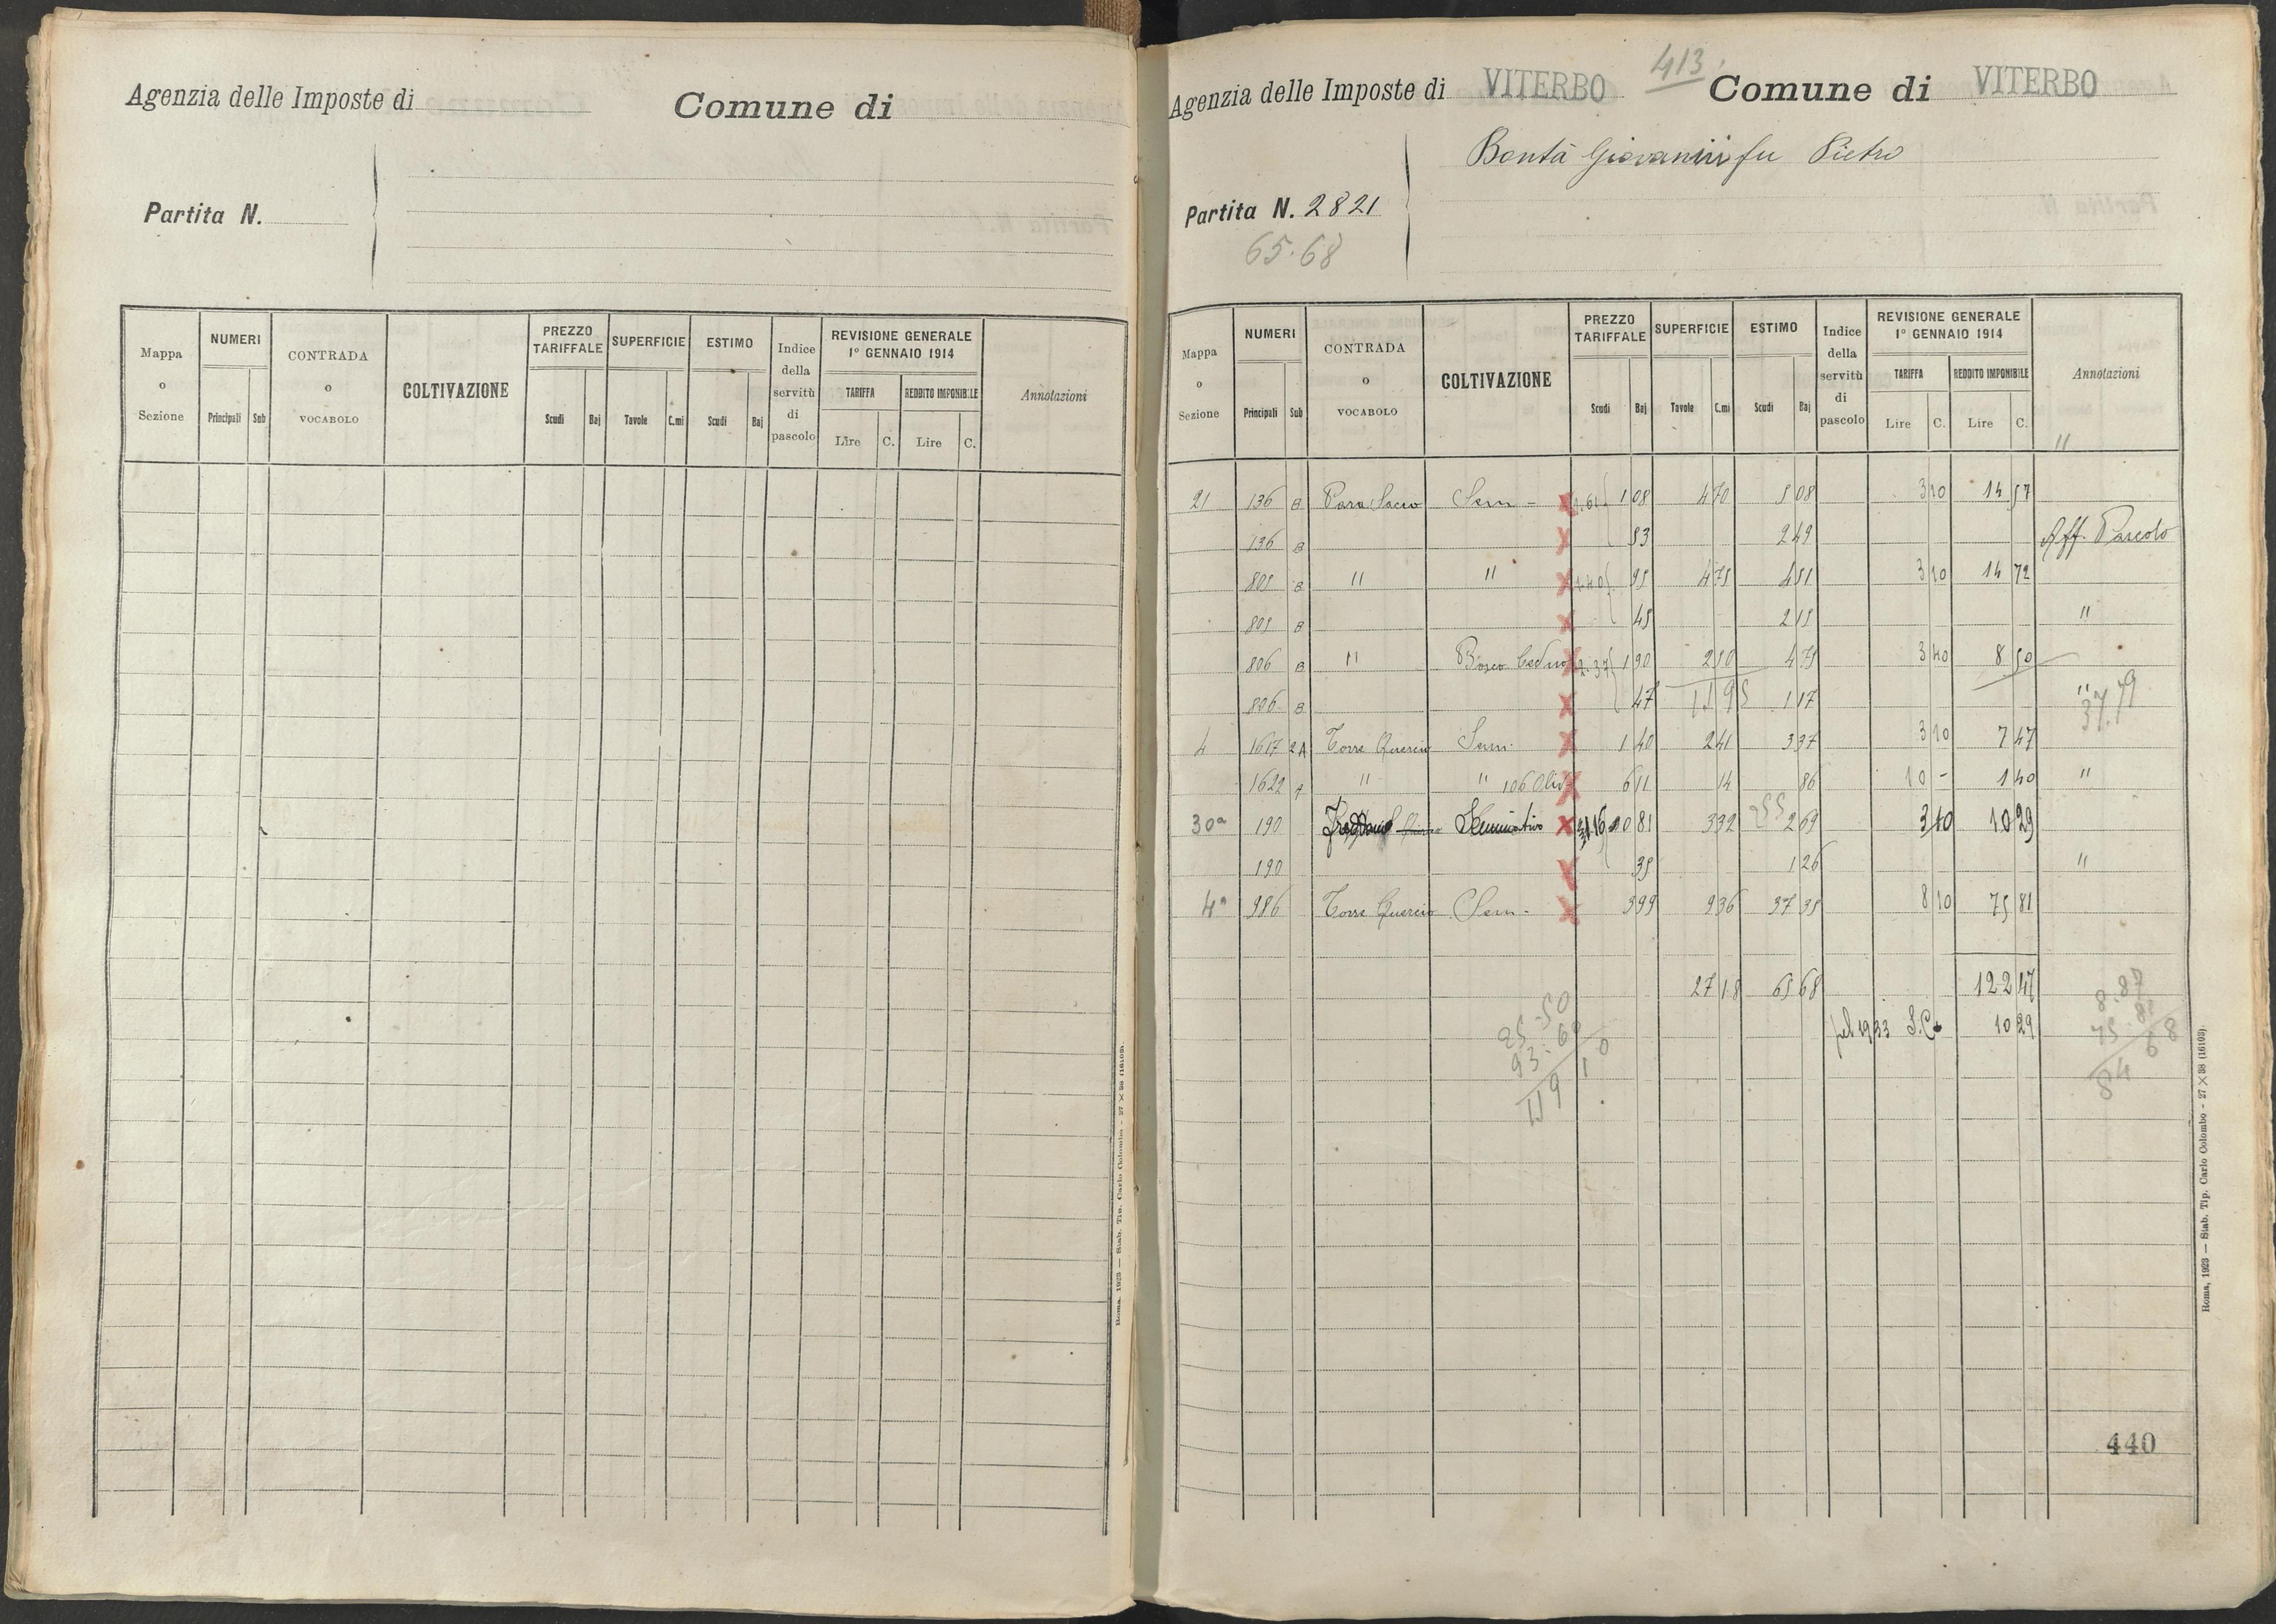 Agenzia delle Imposte di
Comune di
Partita N.
Mappa o Sezione
NUMERI
Principali Sub
CONTRADA o VOCABOLO
COLTIVAZIONE
PREZZO TARIFFALE
Scudi Baj
SUPERFICIE
Tavole C.mi
ESTIMO
Scudi Baj
Indice della servitù di pascolo
REVISIONE GENERALE
1º GENNAIO 1914
TARIFFA REDDITO IMPONIBILE
Lire C. Lire C.
Annotazioni
Roma, 1923 — Stab. Tip. Carlo Colombo - 27 × 38 (16103).
413
Agenzia delle Imposte di VITERBO Comune di VITERBO
Bontà Giovanni fu Pietro
Partita N. 2821
65.68
Mappa o Sezione
NUMERI
Principali Sub
CONTRADA o VOCABOLO
COLTIVAZIONE
PREZZO TARIFFALE
Scudi Baj
SUPERFICIE
Tavole C.mi
ESTIMO
Scudi Baj
Indice della servitù di pascolo
REVISIONE GENERALE
1º GENNAIO 1914
TARIFFA REDDITO IMPONIBILE
Lire C. Lire C.
Annotazioni
"
21 136 B Para Sacco Sem - 1.61 1 08 4 70 5 08 3 10 14 57
136 B 53 2 49 Aff. Pascolo
805 B " " 1.40 95 4 75 4 51 3 10 14 72
805 B 45 2 15 "
806 B " Bosco Ceduo 2.37 1 90 2 50 4 75 3 40 8 50
806 B 47 11 95 1 17 " 37.79
4 1617 2A Torre Quercia Sem. 1 40 2 41 3 37 3 10 7 47
1622 A " " 106 Oliv 6 11 14 86 10 - 1 40 "
30ª 190 Seminativo 1.16 0 81 3 32 2 69 3 10 10 29
190 35 1 26 "
4ª 986 Torre Quercia Sem - 3 99 9 36 37 35 8 10 75 81
27 18 65 68 122 47
pel 1933 S.C. 10 29
25.50
93.60
119 10
8.87
75.81
84 68
440
Roma, 1923 — Stab. Tip. Carlo Colombo - 27 × 38 (16103).